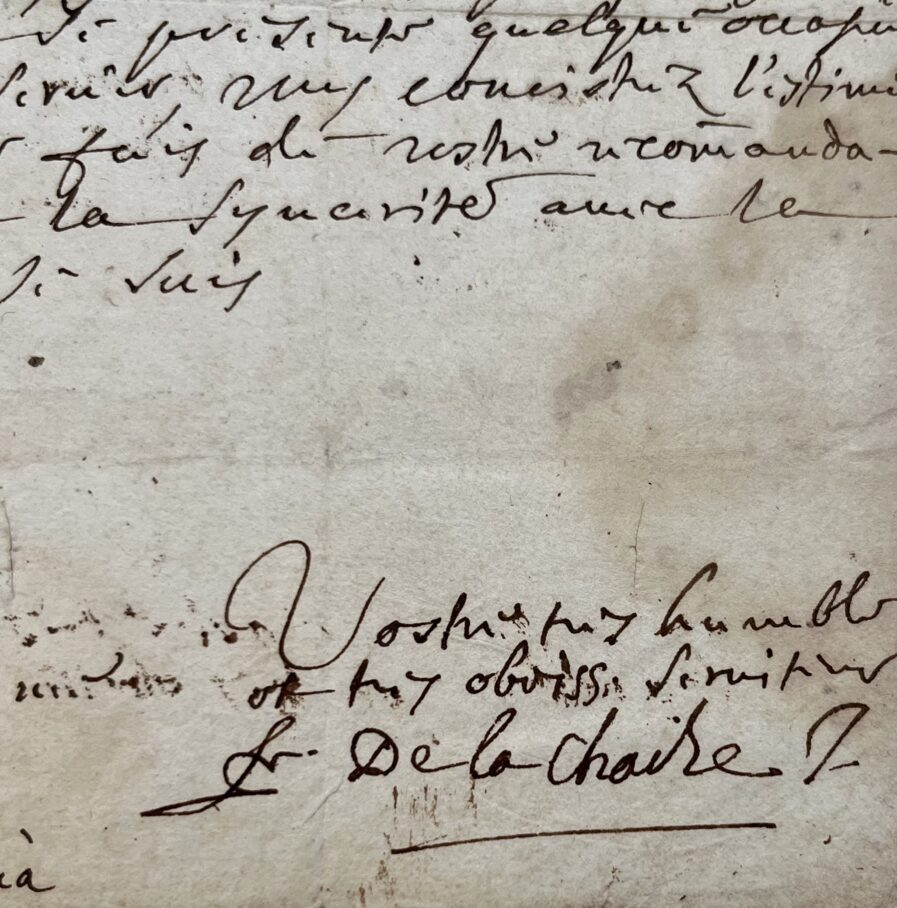 se presente quelque occasi
servir, vous connoistrez l'estime
fais de vostre recomanda-
la syncerité avec la
Je suis
Vostre tres humble
et tres obeiss. serviteur
fr. De la Chaize J
ià